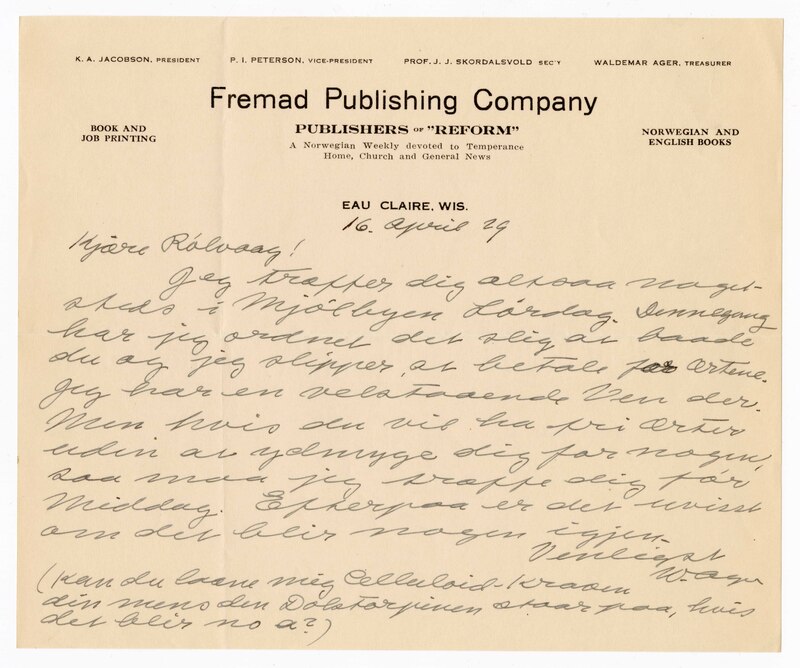 K. A. JACOBSON, PRESIDENT P. I. PETERSON, VICE-PRESIDENT PROF. J. J. SKORDALSVOLD SEC'Y WALDEMAR AGER, TREASURER
Fremad Publishing Company
BOOK AND
JOB PRINTING
PUBLISHERS OF "REFORM"
A Norwegian Weekly devoted to Temperance
Home, Church and General News
NORWEGIAN AND
ENGLISH BOOKS
EAU CLAIRE, WIS.
16. April 29
Kjære Rölvaag!
Jeg træffer dig altsaa noget-
steds i Mjölbyen Lördag. Dennegang
har jeg ordnet det slig at baade
du og jeg slipper at betale for Ærtene.
Jeg har en velstaaende Ven der.
Men hvis du vil ha fri Ærter
uden at ydmyge dig for nogen,
saa maa jeg træffe dig för
Middag. Efterpaa er det uvisst
om det blir nogen igjen.
Venligst
W. Ager
(Kan du laane mig Celluloid-Kraven
din mens den staar paa, hvis
det blir no a?)